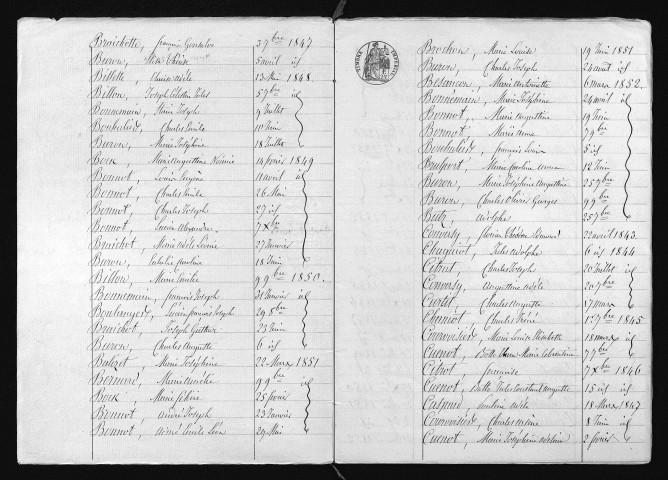 Braichotte, françois Gonsalve 3 7bre 1847
Buron, Thérèse 5 avril id
Billotte, Claire Adèle 13 Mai 1848
Billon, Joseph Célestin Jules 5 7bre id
Bonnemain, Marie Joseph 9 Juillet
Boukulier, Charles Emile 10 Juin
Buron, Marie Joséphine 18 Juillet
Bock, Marie Augustine Noémie 14 février 1849
Bonnot, Louis Eugène 11 avril id
Bonnot, Charles Emile 26 Mai
Bonnot, Charles Joseph 27 id
Bonnot, Lucien Alexandre 7 Xbre
Braichot, Marie Adèle Levine 27 Janvier
Buron, Eulalie pauline 18 Juin
Billon, Marie Emilie 9 9bre 1850
Bonnemain, françois Joseph 31 Janvier id
Boulangerot, Lucien françois Joseph 29 8bre
Braichot, Joseph Gustave 23 Juin
Buron, Charles Auguste 6 id
Balizet, Marie Joséphine 22 Mars 1851
Bernard, Marie Amélie 9 9bre id
Bock, Marie Céline 25 février
Bonnot, André Joseph 23 Janvier
Bonnot, Aimé Emile Léon 29 Mai
TIMBRE IMPERIAL
Brochon, Marie Louise 19 Juin 1851
Buron, Charles Joseph 24 aout id
Besancon, Marie Antoinette 6 mars 1852
Bonnemain, Marie Joséphine 24 avril id
Bonnot, Marie Augustine 19 Juin
Bonnot, Marie Anne 7 9bre
Boukulier, françois Louis 5 id
Beauport, Marie pauline 12 Juin
Buron, Marie Joséphine Augustine 25 7bre
Buron, Charles Olivier Georges 9 9bre
Butz, Adolphe 25 7bre
Convasy, florian Théodore 22 avril 1843
Chagniot, Jules Adolphe 6 id 1844
Cebut, Charles Joseph 20 Juillet id
Convasy, Augustine Adèle 20 7bre
Curtet, Charles Auguste 17 mars
Chaniot, Charles Aimé 1er 7bre 1845
Courvoisier, Marie Louise Elisabeth 18 mars id
Cuenot, Marie Célestine 7 7bre
Cebot, françoise 7 Xbre 1846
Cuenot, Jules Constant Auguste 15 id id
Casenio, Pauline Adèle 18 Mars 1847
Courvoisier, Charles 8 Juin id
Cuenot, Marie Joséphine Adeline 2 février